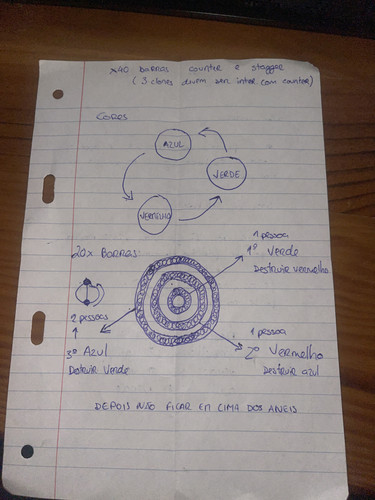 x40 barras counter e stagger
(3 clones devem ser inter com counter)
CORES
AZUL
VERDE
VERMELHO
20x BARRAS
1 pessoa
1º Verde
Destruir vermelho
2 pessoas
3º Azul
Destruir Verde
1 pessoa
2º Vermelho
Destruir azul
DEPOIS NÃO FICAR EM CIMA DOS ANEIS